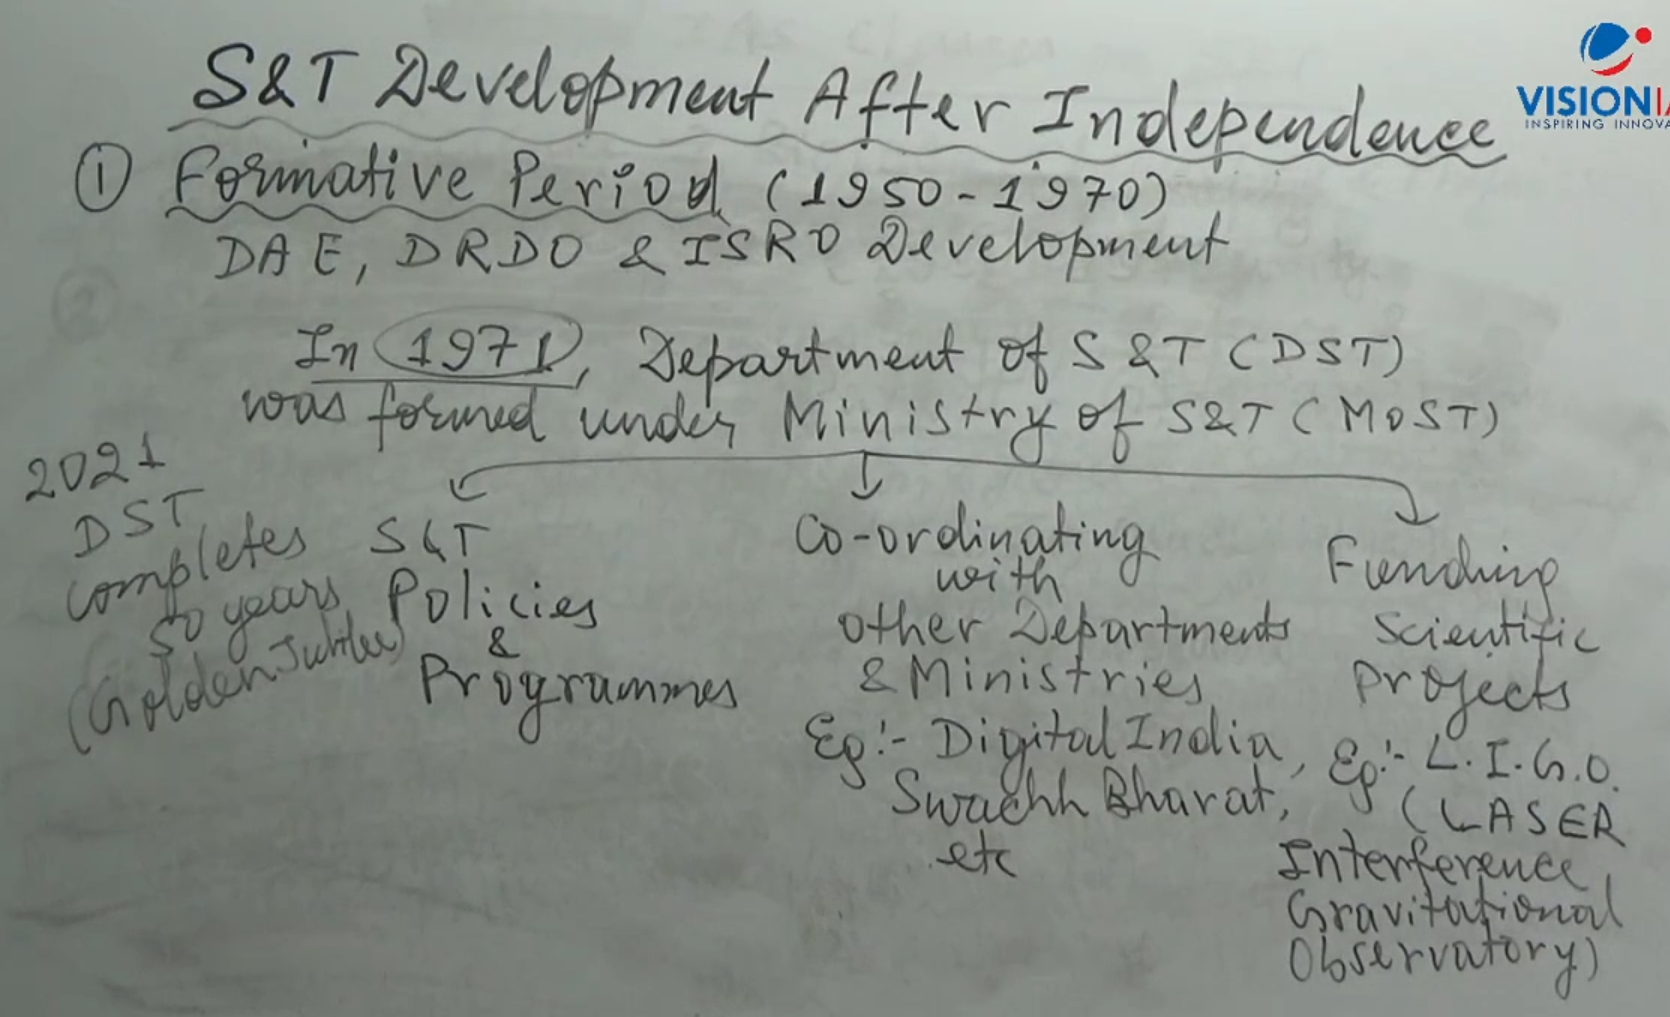 S&T Development After Independence
VISIONIA
INSPIRING INNOVA
① Formative Period (1950-1970)
DAE, DRDO & ISRO Development
In 1971, Department of S&T (DST)
was formed under Ministry of S&T (MOST)
2021
DST
completes
50 years
(Golden Jubilee)
S&T
Policies
&
Programmes
Co-ordinating
with
other Departments
& Ministries
Eg:- Digital India,
Swachh Bharat,
etc
Funding
Scientific
Projects
Eg:- L.I.G.O.
(LASER
Interference
Gravitational
Observatory)